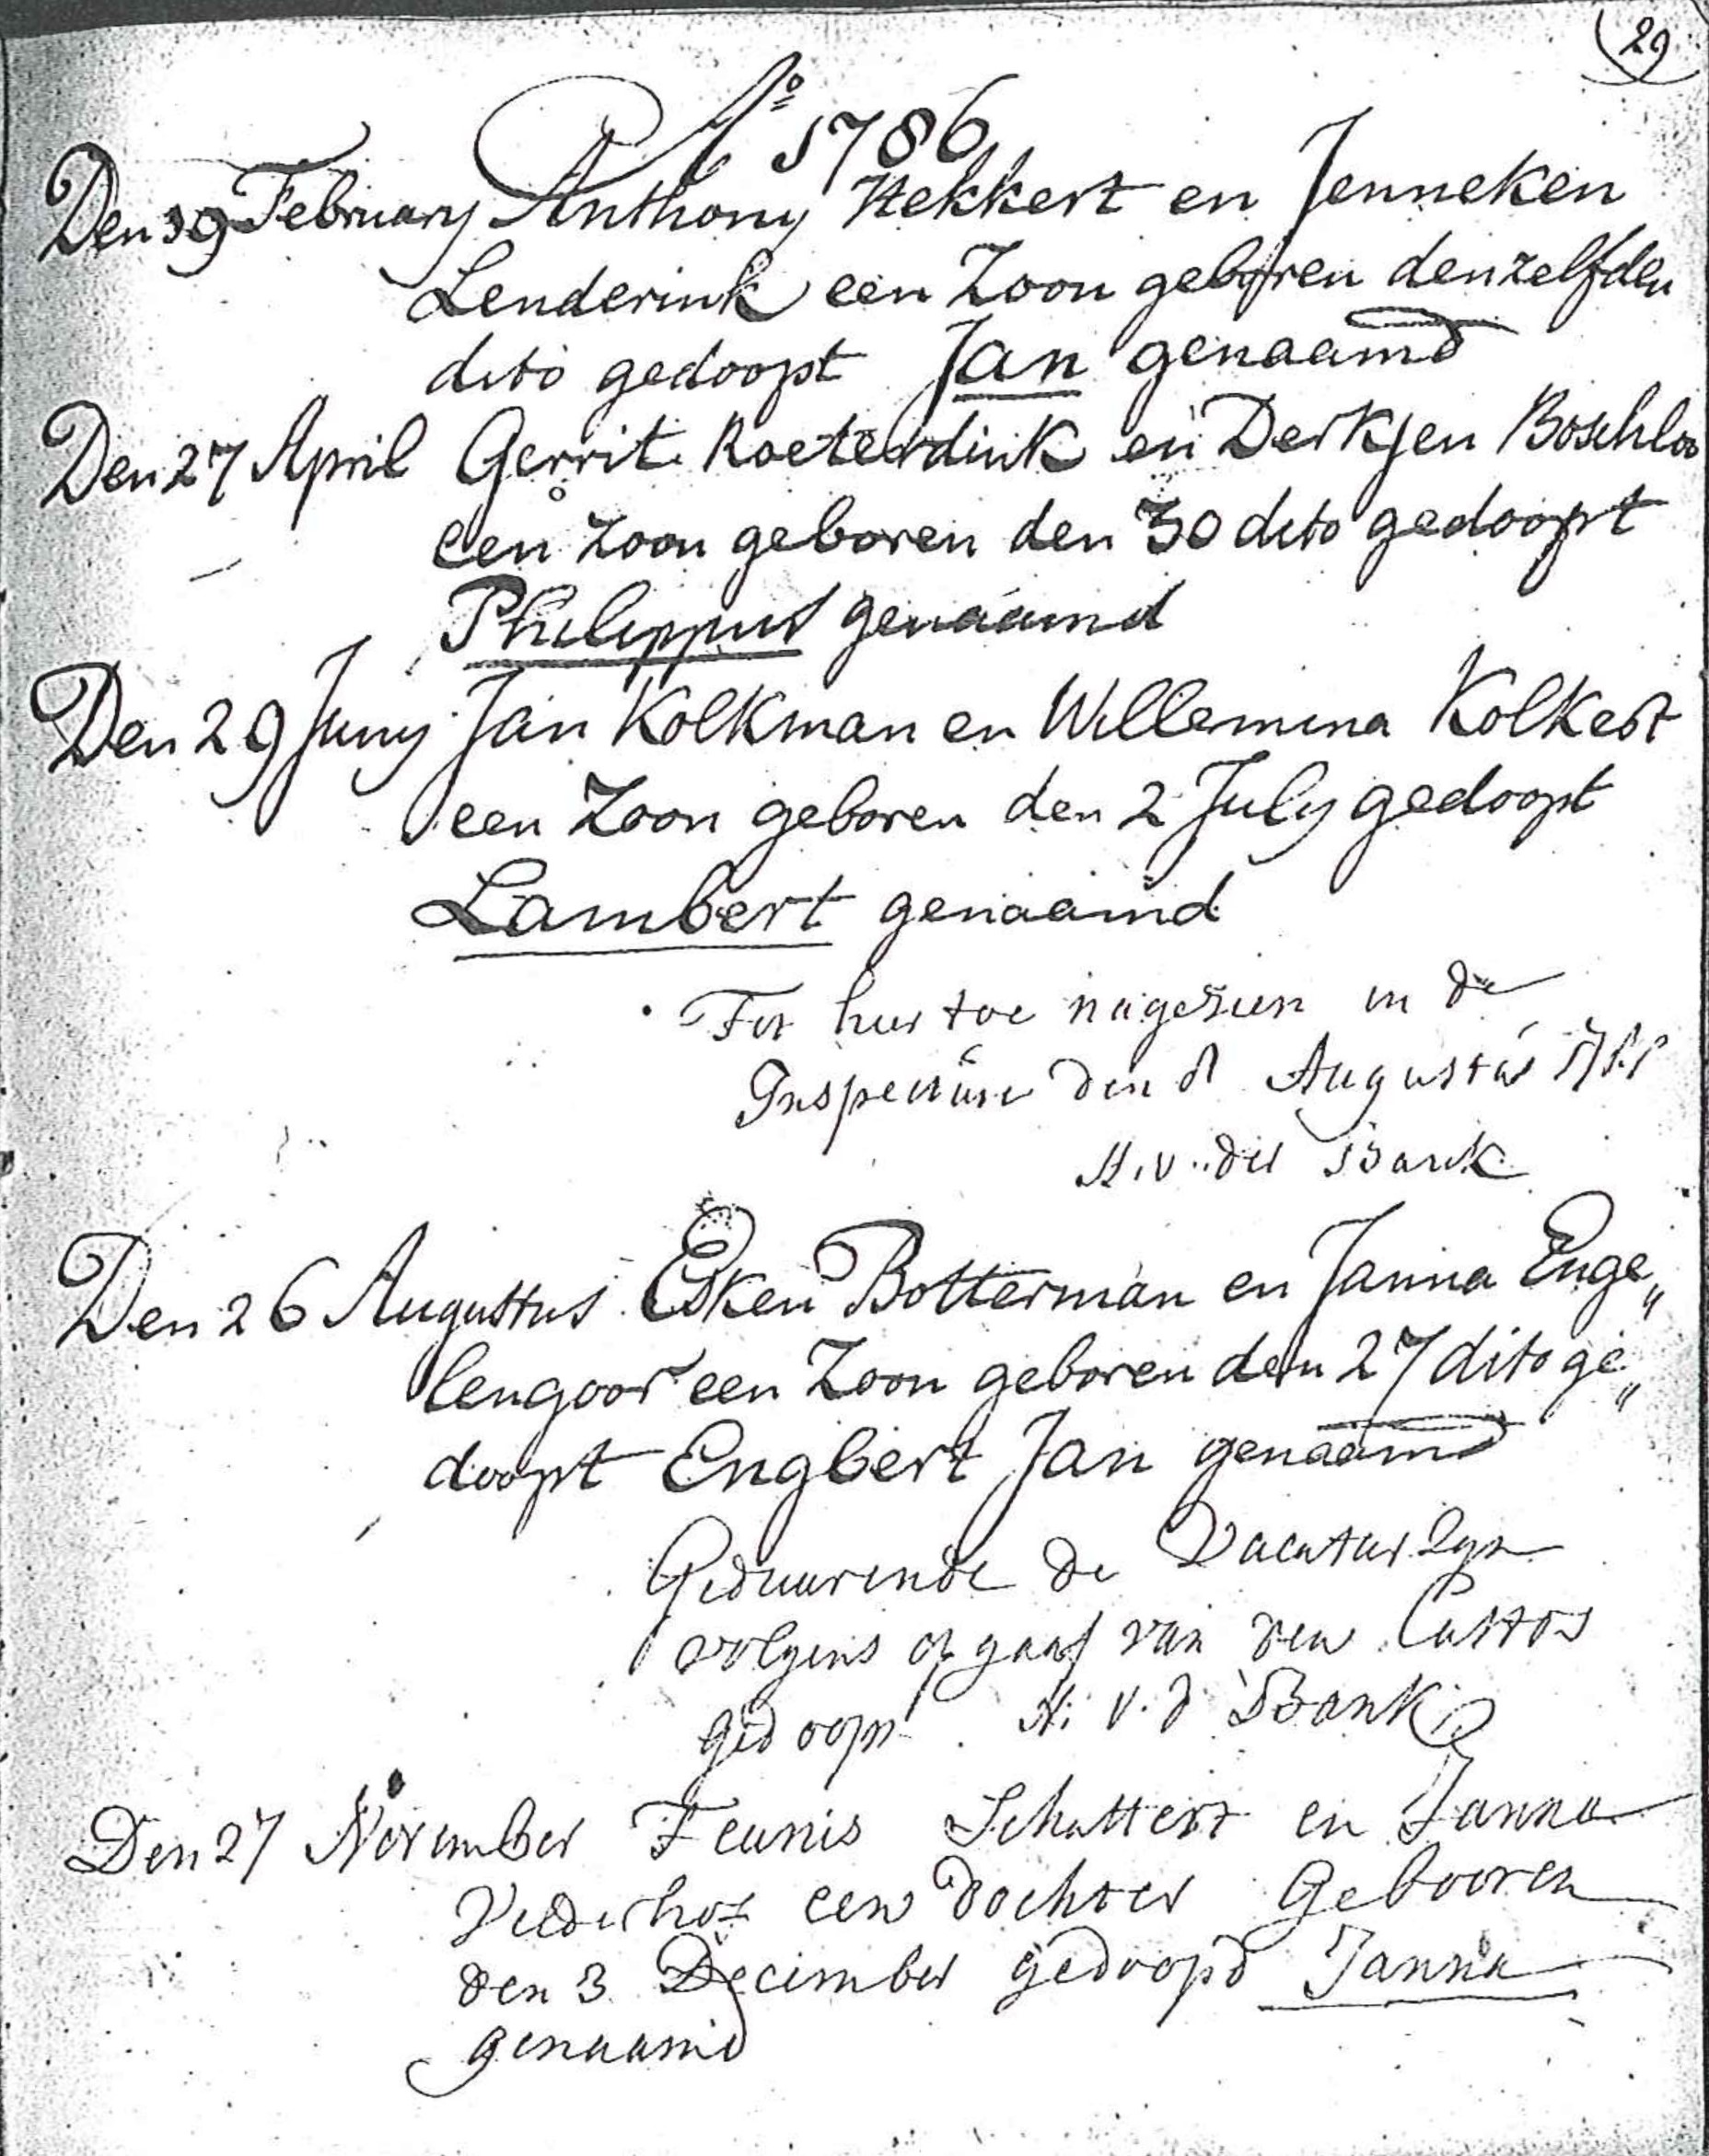 29
Ao 1786
Den 19 February Anthony Hekkert en Jenneken
Lenderink een Zoon geboren denzelfden
dito gedoopt Jan genaamd
Den 27 April Gerrit Roeterdink en Derkjen Boschloo
een Zoon geboren den 30 dito gedoopt
Philippus genaamd
Den 29 Juny Jan Kolkman en Willemina Kolkert
een Zoon geboren den 2 July gedoopt
Lambert genaamd
Tot hier toe nagesien in de
den 8 Augustus
H. v. der Bank
Den 26 Augustus Esken Botterman en Janna Enge„
lengoor een Zoon geboren den 27 dito ge„
doopt Engbert Jan genaamd
Geduurende de Vacatur zyn
volgens opgaaf van den Custos
gedoopt. H. v. d Bank
Den 27 November Teunis Schuttert en Janna
een dochter Gebooren
den 3 December gedoopd Janna
genaamd